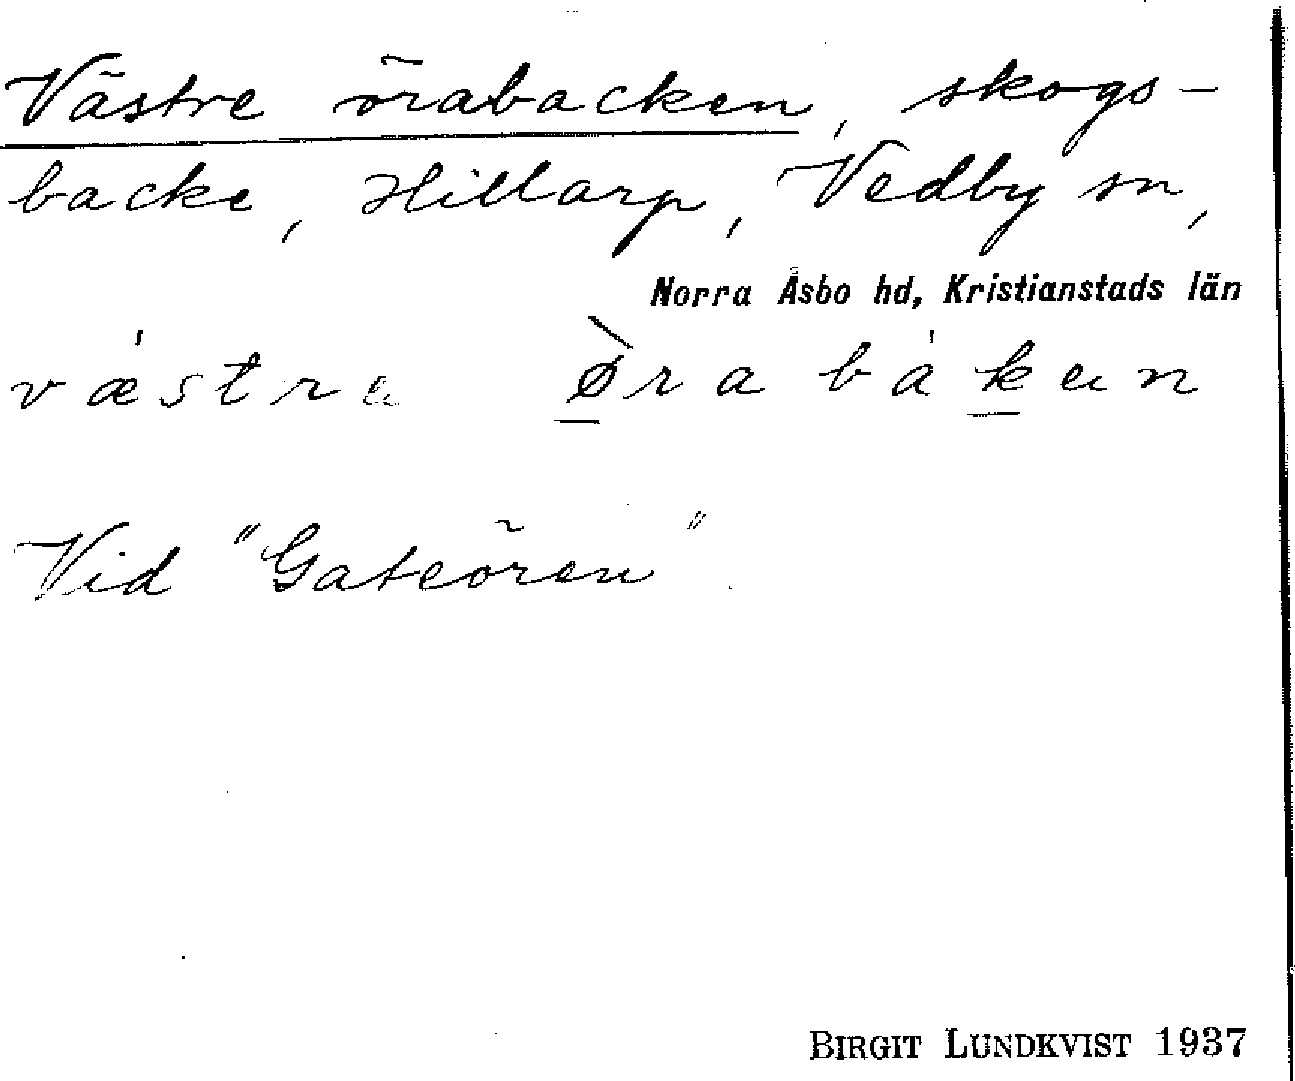 Västre örabacken, skogs-
backe, Hillarp, Vedby sn,
Norra Åsbo hd, Kristianstads län
væ̍stra ø̠̀raba̍k̠an
Vid "Gateören".
BIRGIT LUNDKVIST 1937